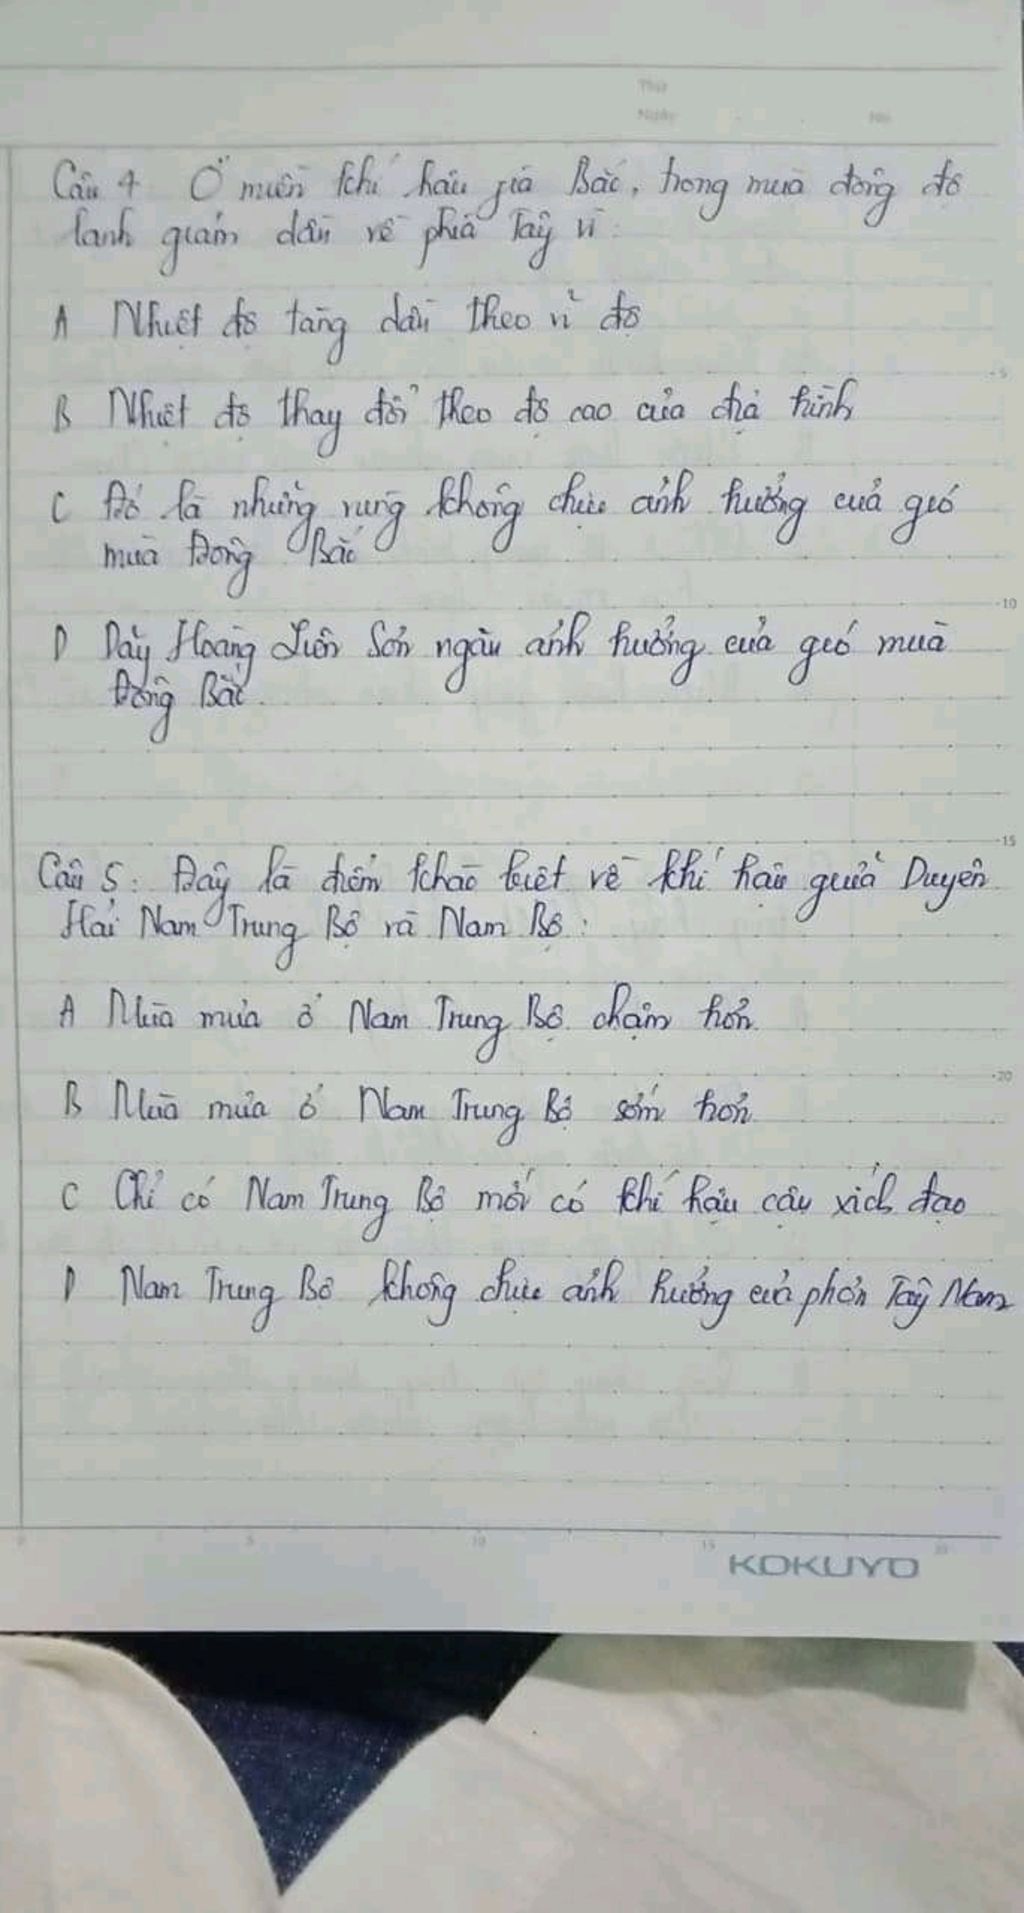 Thứ
Ngày
No
Câu 4 Ở miền khí hậu phía Bắc, trong mùa đông độ
lạnh giảm dần về phía Tây vì:
A Nhiệt độ tăng dần theo vĩ độ
B Nhiệt độ thay đổi theo độ cao của địa hình
C Đó là những vùng không chịu ảnh hưởng của gió
mùa Đông Bắc
D Dãy Hoàng Liên Sơn ngăn ảnh hưởng của gió mùa
Đông Bắc.
Câu 5: Đây là điểm khác biệt về khí hậu giữa Duyên
Hải Nam Trung Bộ và Nam Bộ:
A Mùa mưa ở Nam Trung Bộ chậm hơn
B Mùa mưa ở Nam Trung Bộ sớm hơn
C Chỉ có Nam Trung Bộ mới có khí hậu cận xích đạo
D Nam Trung Bộ không chịu ảnh hưởng của phơn Tây Nam
5
10
15
20
5 10 15 20
KOKUYO